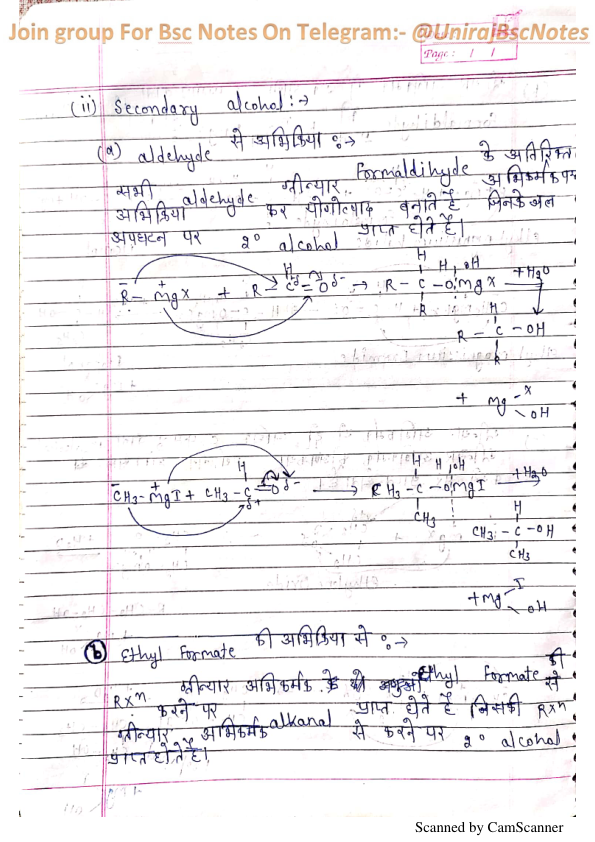 Join group For Bsc Notes On Telegram:- @UnirajBscNotes
Page: / /
(ii) Secondary alcohol :→
(a) aldehyde से अभिक्रिया :→
सभी aldehyde ग्रीन्यार Formaldihyde के अतिरिक्त
अभिक्रिया कर योगोत्पाद बनाते है जिनके जल
अपघटन पर 2° alcohol प्राप्त होते है।
H H H, OH
R̄ - M⁺gX + R - Cδ⁺ = Oδ- → R - C - OMgX +H₂O
R H
R - C - OH
R
+ Mg - X
OH
H H H, OH
C̄H₃ - M⁺gI + CH₃ - C = Oδ- → CH₃ - C - OMgI +H₂O
δ+ CH₃ H
CH₃ - C - OH
CH₃
+ Mg I
OH
(b) Ethyl Formate की अभिक्रिया से :→
ग्रीन्यार अभिकर्मक के Ethyl Formate की
Rxⁿ करने पर प्राप्त होते है जिसकी Rxⁿ से
ग्रीन्यार अभिकर्मक alkanal से करने पर 2° alcohol
प्राप्त होते है।
Scanned by CamScanner